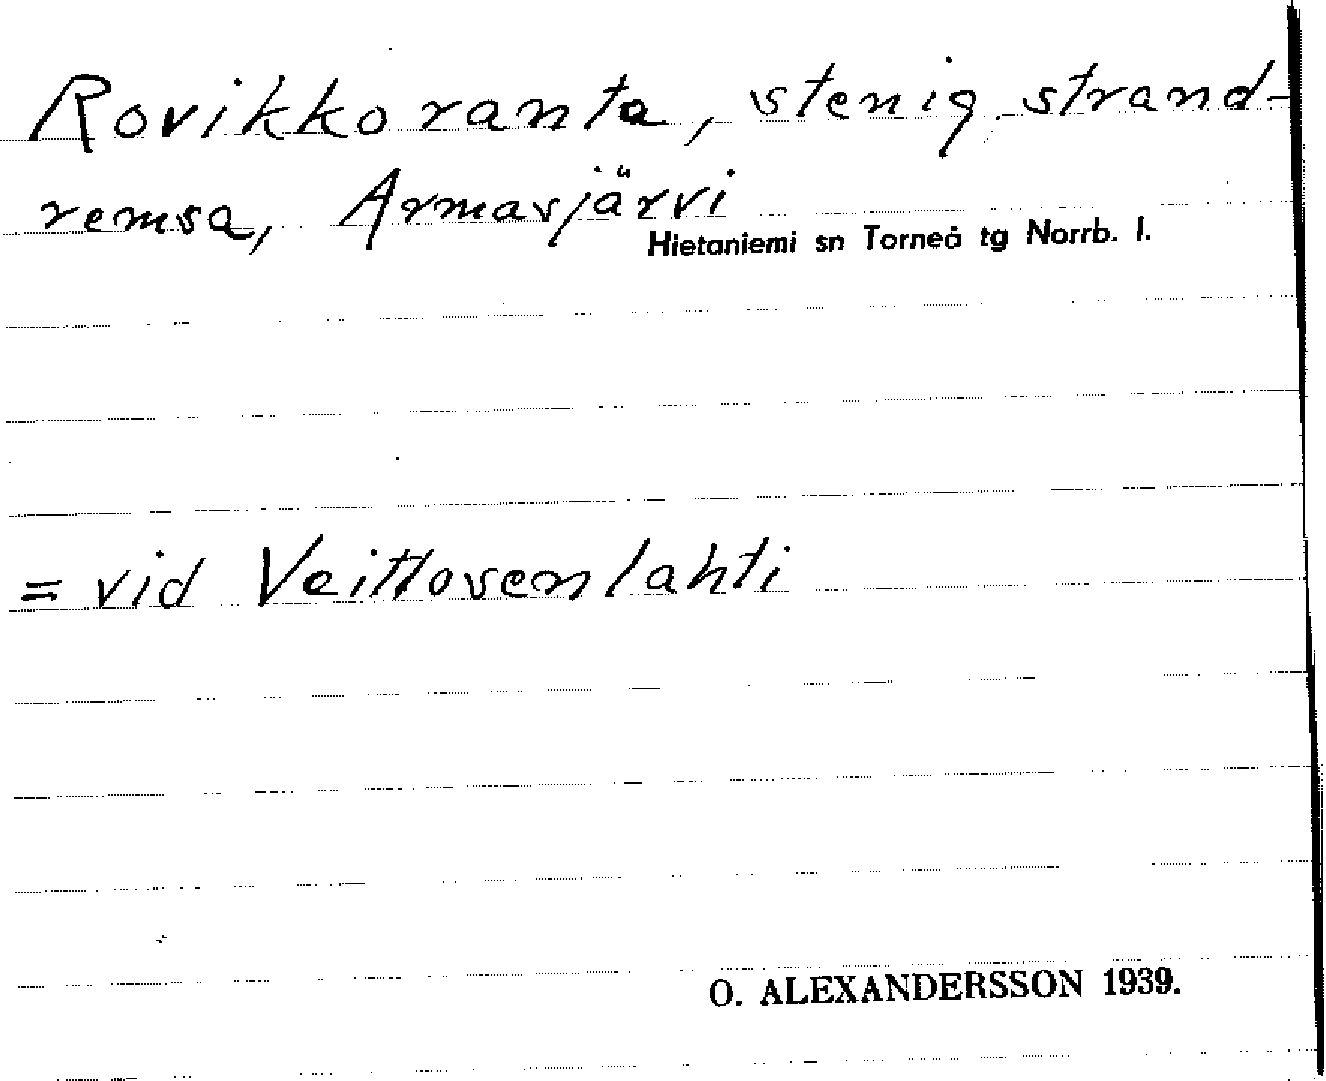 Rovikkoranta, stenig strand-
remsa, Armasjärvi
Hietaniemi sn Torneå tg Norrb. l.
= vid Veittovenlahti
O. ALEXANDERSSON 1939.